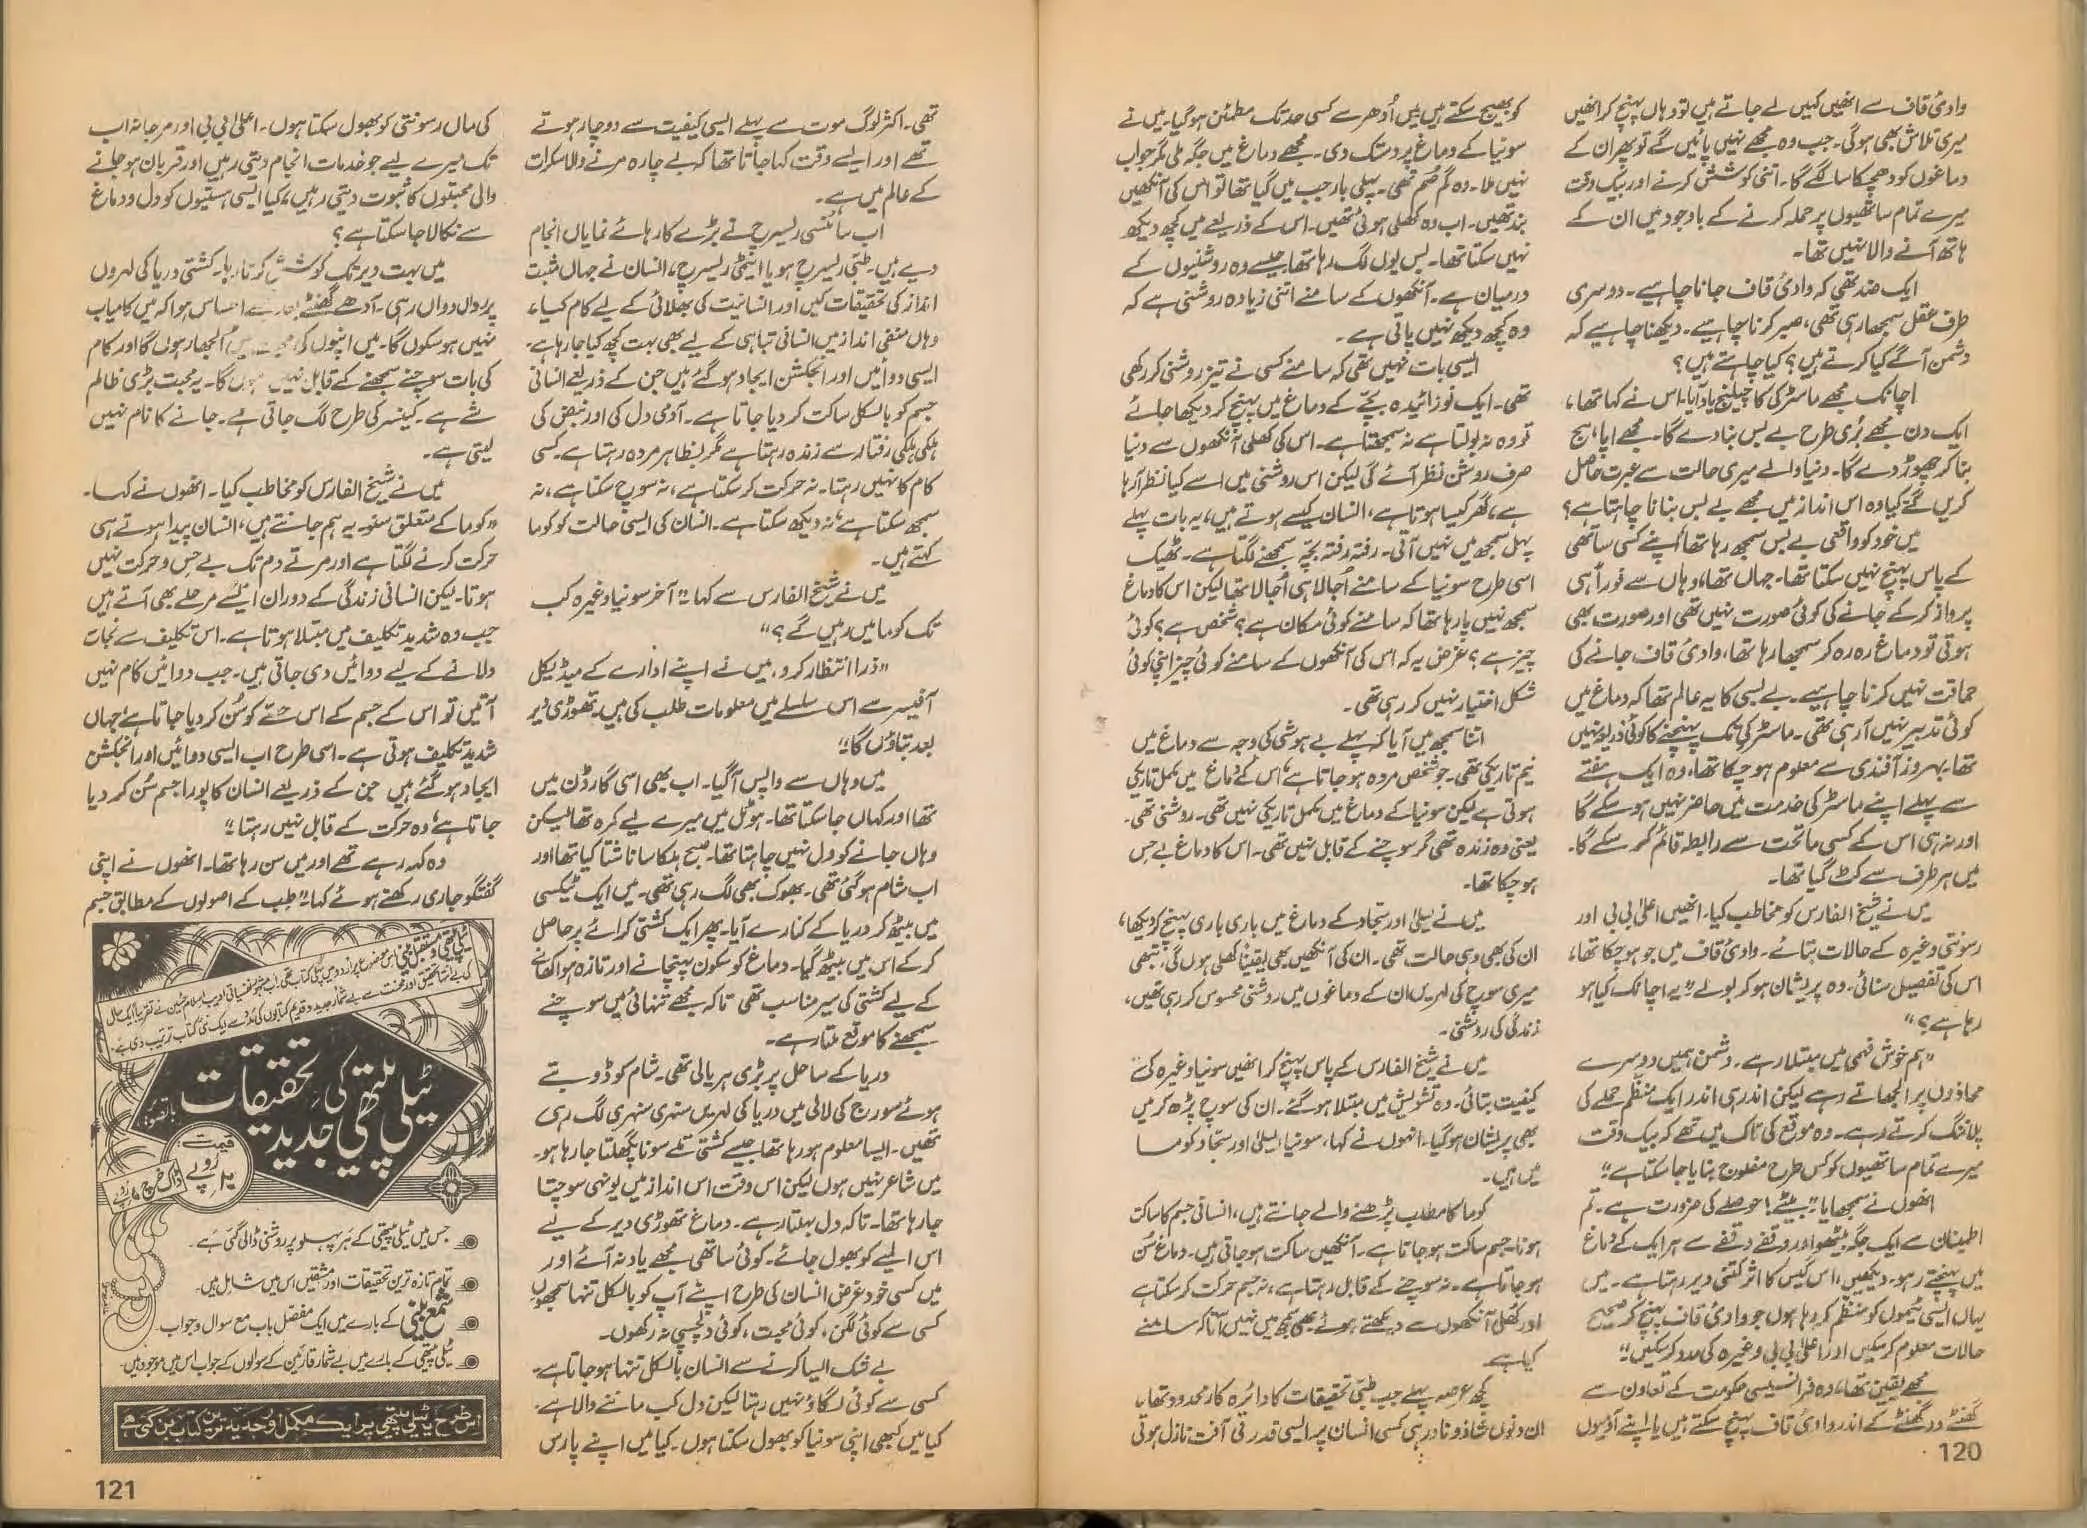 وادیٔ قاف سے انھیں کہیں لے جاتے ہیں تو وہاں پہنچ کر انھیں
میری تلاش بھی ہوگی۔ جب وہ مجھے نہیں پائیں گے تو پھر ان کے
دماغوں کو دھچکا سا لگے گا۔ اتنی کوشش کرنے اور بیک وقت
میرے تمام ساتھیوں پر حملہ کرنے کے باوجود میں ان کے
ہاتھ آنے والا نہیں تھا۔
ایک ضد تھی کہ وادیٔ قاف جانا چاہیے۔ دوسری
طرف عقل سمجھا رہی تھی، صبر کرنا چاہیے۔ دیکھنا چاہیے کہ
دشمن آگے کیا کرتے ہیں؟ کیا چاہتے ہیں؟
اچانک مجھے ماسٹر کی کا چیلنج یاد آیا۔ اس نے کہا تھا،
ایک دن مجھے بُری طرح بے بس بنا دے گا۔ مجھے اپاہج
بنا کر چھوڑ دے گا۔ دنیا والے میری حالت سے عبرت حاصل
کریں گے کیا وہ اس انداز میں مجھے بے بس بنانا چاہتا ہے؟
میں خود کو واقعی بے بس سمجھ رہا تھا۔ اپنے کسی ساتھی
کے پاس پہنچ نہیں سکتا تھا۔ جہاں تھا، وہاں سے فوراً ہی
پرواز کر کے جانے کی کوئی صورت نہیں تھی اور صورت بھی
ہوتی تو دماغ رہ رہ کر سمجھا رہا تھا، وادیٔ قاف جانے کی
حماقت نہیں کرنا چاہیے۔ بے بسی کا یہ عالم تھا کہ دماغ میں
کوئی تدبیر نہیں آ رہی تھی۔ ماسٹر کی تک پہنچنے کا کوئی ذریعہ نہیں
تھا۔ بہروز آفندی سے معلوم ہو چکا تھا، وہ ایک ہفتے
سے پہلے اپنے ماسٹر کی خدمت میں حاضر نہیں ہو سکے گا
اور نہ ہی اس کے کسی ماتحت سے رابطہ قائم کر سکے گا۔
میں ہر طرف سے کٹ گیا تھا۔
میں نے شیخ الفارس کو مخاطب کیا۔ انھیں اعلیٰ بی بی اور
رسونتی وغیرہ کے حالات بتائے۔ وادیٔ قاف میں جو ہو چکا تھا،
اس کی تفصیل سنائی۔ وہ پریشان ہو کر بولے "یہ اچانک کیا ہو
رہا ہے؟"
"ہم خوش فہمی میں مبتلا رہے۔ دشمن ہمیں دوسرے
محاذوں پر الجھاتے رہے لیکن اندر ہی اندر ایک منظم حملے کی
پلاننگ کرتے رہے۔ وہ موقع کی تاک میں تھے کہ بیک وقت
میرے تمام ساتھیوں کو کس طرح مفلوج بنایا جا سکتا ہے"
انھوں نے سمجھایا "بیٹے! حوصلے کی ضرورت ہے۔ تم
اطمینان سے ایک جگہ بیٹھو اور وقفے وقفے سے ہر ایک کے دماغ
میں پہنچتے رہو۔ دیکھیں، اس گیس کا اثر کتنی دیر رہتا ہے۔ میں
یہاں ایسی ٹیموں کو منظم کر رہا ہوں جو وادیٔ قاف پہنچ کر صحیح
حالات معلوم کر سکیں اور اعلیٰ بی بی وغیرہ کی مدد کر سکیں"
مجھے یقین تھا، وہ فرانسیسی حکومت کے تعاون سے
گھنٹے دو گھنٹے کے اندر وادیٔ قاف پہنچ سکتے ہیں یا اپنے آدمیوں
کو بھیج سکتے ہیں میں اُدھر سے کسی حد تک مطمئن ہو گیا۔ میں نے
سونیا کے دماغ پر دستک دی۔ مجھے دماغ میں جگہ ملی مگر جواب
نہیں ملا۔ وہ گم صُم تھی۔ پہلی بار جب میں گیا تھا تو اس کی آنکھیں
بند تھیں۔ اب وہ کھلی ہوئی تھیں۔ اس کے ذریعے میں کچھ دیکھ
نہیں سکتا تھا۔ بس یوں لگ رہا تھا جیسے وہ روشنیوں کے
درمیان ہے۔ آنکھوں کے سامنے اتنی زیادہ روشنی ہے کہ
وہ کچھ دیکھ نہیں پاتی ہے۔
ایسی بات نہیں تھی کہ سامنے کسی نے تیز روشنی کر رکھی
تھی۔ ایک نوزائیدہ بچّے کے دماغ میں پہنچ کر دیکھا جائے
تو وہ نہ بولتا ہے نہ سمجھتا ہے۔ اس کی کھلی آنکھوں سے دنیا
صرف روشن نظر آئے گی لیکن اس روشنی میں اسے کیا نظر آ رہا
ہے، گھر کیسا ہوتا ہے، انسان کیسے ہوتے ہیں، یہ بات پہلے
پہل سمجھ میں نہیں آتی۔ رفتہ رفتہ بچّہ سمجھنے لگتا ہے۔ ٹھیک
اسی طرح سونیا کے سامنے اُجالا ہی اُجالا تھا لیکن اس کا دماغ
سمجھ نہیں پا رہا تھا کہ سامنے کوئی مکان ہے؟ شخص ہے؟ کوئی
چیز ہے؟ غرض یہ کہ اس کی آنکھوں کے سامنے کوئی چیز اپنی کوئی
شکل اختیار نہیں کر رہی تھی۔
اتنا سمجھ میں آیا کہ پہلے بے ہوشی کی وجہ سے دماغ میں
نیم تاریکی تھی۔ جو شخص مردہ ہو جاتا ہے، اس کے دماغ میں مکمل تاریکی
ہوتی ہے لیکن سونیا کے دماغ میں مکمل تاریکی نہیں تھی۔ روشنی تھی۔
یعنی وہ زندہ تھی مگر سوچنے کے قابل نہیں تھی۔ اس کا دماغ بے حس
ہو چکا تھا۔
میں نے لیلیٰ اور سجاد کے دماغ میں باری باری پہنچ کر دیکھا،
ان کی بھی وہی حالت تھی۔ ان کی آنکھیں بھی یقیناً کھلی ہوں گی، تبھی
میری سوچ کی لہریں ان کے دماغوں میں روشنی محسوس کر رہی تھیں،
زندگی کی روشنی۔
میں نے شیخ الفارس کے پاس پہنچ کر انھیں سونیا وغیرہ کی
کیفیت بتائی۔ وہ تشویش میں مبتلا ہو گئے۔ ان کی سوچ پڑھ کر میں
بھی پریشان ہو گیا۔ انہوں نے کہا، سونیا، لیلیٰ اور سجاد کوما
میں ہیں۔
کوما کا مطلب پڑھنے والے جانتے ہیں، انسانی جسم کا ساکت
ہونا۔ جسم ساکت ہو جاتا ہے۔ آنکھیں ساکت ہو جاتی ہیں۔ دماغ سُن
ہو جاتا ہے۔ نہ سوچنے کے قابل رہتا ہے، نہ جسم حرکت کر سکتا ہے
اور کھلی آنکھوں سے دیکھتے ہوئے بھی سمجھ میں نہیں آتا کہ سامنے
کیا ہے۔
کچھ عرصہ پہلے جب طبی تحقیقات کا دائرہ کار محدود تھا،
ان دنوں شاذ و نادر ہی کسی انسان پر ایسی قدرتی آفت نازل ہوتی
120
تھی۔ اکثر لوگ موت سے پہلے ایسی کیفیت سے دوچار ہوتے
تھے اور ایسے وقت کہا جاتا تھا کہ بے چارہ مرنے والا سکرات
کے عالم میں ہے۔
اب سائنسی ریسرچ نے بڑے کارہائے نمایاں انجام
دیے ہیں۔ طبی ریسرچ ہو یا ایٹمی ریسرچ، انسان نے جہاں مثبت
انداز کی تحقیقات کیں اور انسانیت کی بھلائی کے لیے کام کیا،
وہاں منفی انداز میں انسانی تباہی کے لیے بھی بہت کچھ کیا جا رہا ہے۔
ایسی دوائیں اور انجکشن ایجاد ہو گئے ہیں جن کے ذریعے انسانی
جسم کو بالکل ساکت کر دیا جاتا ہے۔ آدمی دل کی اور نبض کی
ہلکی ہلکی رفتار سے زندہ رہتا ہے مگر بظاہر مردہ رہتا ہے۔ کسی
کام کا نہیں رہتا۔ نہ حرکت کر سکتا ہے، نہ سوچ سکتا ہے، نہ
سمجھ سکتا ہے، نہ دیکھ سکتا ہے۔ انسان کی ایسی حالت کو کوما
کہتے ہیں۔
میں نے شیخ الفارس سے کہا "آخر سونیا وغیرہ کب
تک کوما میں رہیں گے؟"
"ذرا انتظار کرو، میں نے اپنے ادارے کے میڈیکل
آفیسر سے اس سلسلے میں معلومات طلب کی ہیں۔ تھوڑی دیر
بعد بتاؤں گا"
میں وہاں سے واپس آ گیا۔ اب بھی اسی گارڈن میں
تھا اور کہاں جا سکتا تھا۔ ہوٹل میں میرے لیے کمرہ تھا لیکن
وہاں جانے کو دل نہیں چاہتا تھا۔ صبح ہلکا سا ناشتا کیا تھا اور
اب شام ہو گئی تھی۔ بھوک بھی لگ رہی تھی۔ میں ایک ٹیکسی
میں بیٹھ کر دریا کے کنارے آیا۔ پھر ایک کشتی کرائے پر حاصل
کر کے اس میں بیٹھ گیا۔ دماغ کو سکون پہنچانے اور تازہ ہوا کھانے
کے لیے کشتی کی سیر مناسب تھی تاکہ مجھے تنہائی میں سوچنے
سمجھنے کا موقع ملتا رہے۔
دریا کے ساحل پر بڑی ہریالی تھی۔ شام کو ڈوبتے
ہوئے سورج کی لالی میں دریا کی لہریں سنہری سنہری لگ رہی
تھیں۔ ایسا معلوم ہو رہا تھا جیسے کشتی تلے سونا پگھلتا جا رہا ہو۔
میں شاعر نہیں ہوں لیکن اس وقت اس انداز میں یونہی سوچتا
جا رہا تھا۔ تاکہ دل بہلتا رہے۔ دماغ تھوڑی دیر کے لیے
اس المیے کو بھول جائے۔ کوئی ساتھی مجھے یاد نہ آئے اور
میں کسی خود غرض انسان کی طرح اپنے آپ کو بالکل تنہا سمجھوں
کسی سے کوئی لگن، کوئی محبت، کوئی دلچسپی نہ رکھوں۔
بے شک ایسا کرنے سے انسان بالکل تنہا ہو جاتا ہے۔
کسی سے کوئی لگاؤ نہیں رہتا لیکن دل کب ماننے والا ہے۔
کیا میں کبھی اپنی سونیا کو بھول سکتا ہوں۔ کیا میں اپنے پارس
کی ماں رسونتی کو بھول سکتا ہوں۔ اعلیٰ بی بی اور مرجانہ اب
تک میرے لیے جو خدمات انجام دیتی رہیں اور قربان ہو جانے
والی محبتوں کا ثبوت دیتی رہیں، کیا ایسی ہستیوں کو دل و دماغ
سے نکالا جا سکتا ہے؟
میں بہت دیر تک کوشش کرتا رہا۔ کشتی دریا کی لہروں
پر رواں دواں رہی۔ آدھے گھنٹے بعد احساس ہوا کہ میں کامیاب
نہیں ہو سکوں گا۔ میں اپنوں کی محبت میں الجھا رہوں گا اور کام
کی بات سوچنے سمجھنے کے قابل نہیں ہوں گا۔ یہ محبت بڑی ظالم
شے ہے۔ کینسر کی طرح لگ جاتی ہے۔ جانے کا نام نہیں
لیتی ہے۔
میں نے شیخ الفارس کو مخاطب کیا۔ انھوں نے کہا۔
"کوما کے متعلق سنو۔ یہ ہم جانتے ہیں، انسان پیدا ہوتے ہی
حرکت کرنے لگتا ہے اور مرتے دم تک بے حس و حرکت نہیں
ہوتا۔ لیکن انسانی زندگی کے دوران ایسے مرحلے بھی آتے ہیں
جب وہ شدید تکلیف میں مبتلا ہوتا ہے۔ اس تکلیف سے نجات
دلانے کے لیے دوائیں دی جاتی ہیں۔ جب دوائیں کام نہیں
آتیں تو اس کے جسم کے اس حصّے کو سُن کر دیا جاتا ہے، جہاں
شدید تکلیف ہوتی ہے۔ اسی طرح اب ایسی دوائیں اور انجکشن
ایجاد ہو گئے ہیں جن کے ذریعے انسان کا پورا جسم سُن کر دیا
جاتا ہے، وہ حرکت کے قابل نہیں رہتا"
وہ کہہ رہے تھے اور میں سن رہا تھا۔ انھوں نے اپنی
گفتگو جاری رکھتے ہوئے کہا "طب کے اصولوں کے مطابق جسم
ٹیلی پیتھی کی جدید تحقیقات
باتصویر
قیمت: ۲۰ روپے
ڈاک خرچ ۴ روپے
جس میں ٹیلی پیتھی کے ہر پہلو پر روشنی ڈالی گئی ہے۔
تمام تازہ ترین تحقیقات اور مشقیں اس میں شامل ہیں۔
شمع بینی کے بارے میں ایک مفصل باب مع سوال و جواب۔
ٹیلی پیتھی کے بارے میں بے شمار قارئین کے سوالوں کے جواب اس میں موجود ہیں۔
اس طرح یہ ٹیلی پیتھی پر ایک مکمل اور جدید ترین کتاب بن گئی ہے
121